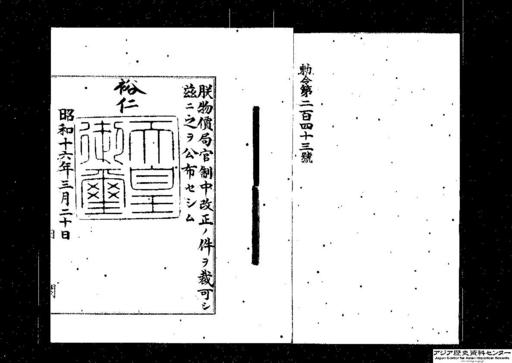 勅令第二百四十三號
朕物價局官制中改正ノ件ヲ裁可シ
茲ニ之ヲ公布セシム
裕仁
天皇
御璽
昭和十六年三月二十日
アジア歴史資料センター
Japan Center for Asian Historical Records